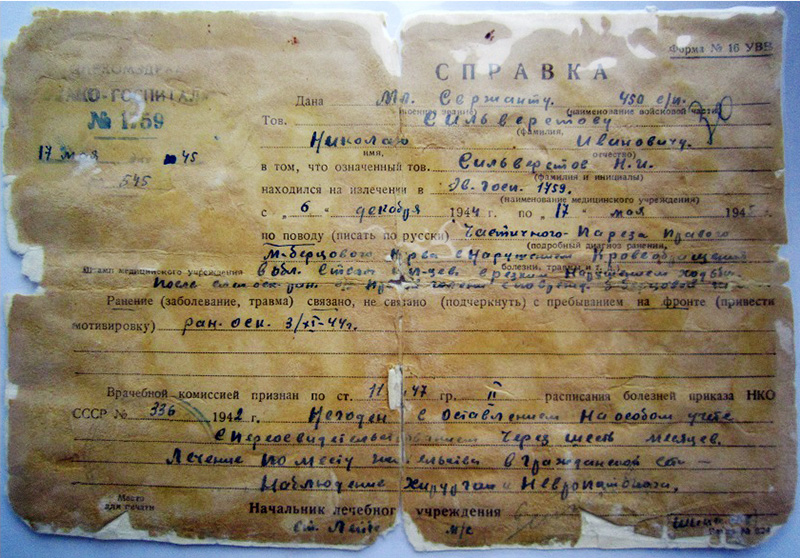 Форма № 16 УВВ
СПРАВКА
№ 1759
Дана Мл. Сержанту. 450 с/п.
(наименование войсковой части)
Тов. Сильверстову
(фамилия,
Николаю Ивановичу.
имя, отчество)
17 мая 45
545
в том, что означенный тов. Сильверстов Н.И.
(фамилия и инициалы)
находился на излечении в Эв. госп. 1759.
(наименование медицинского учреждения)
с „6“ декабря 1944 г. по „17“ мая 194 г.
по поводу (писать по русски) Частичного Пареза Правого
(подробный диагноз ранения,
М-берцового Нерва с Нарушением Кровообращения
болезни, травмы и т. п.)
Штамп медицинского учреждения в обл. Стопы с резким Нарушением ходьбы
После
Ранение (заболевание, травма) связано, не связано (подчеркнуть) с пребыванием на фронте (привести
мотивировку) ран. оск. 3/XI-44г.
Врачебной комиссией признан по ст. 11 47 гр. II расписания болезней приказа НКО
СССР № 336 1942 г. Негоден с оставлением На особом учете
с Переосвидетельствованием Через шесть месяцев.
Лечение По месту жительства в гражданской сети —
Наблюдение Хирурга и Невропатолога.
Место
для печати
Начальник лечебного учреждения
м/с